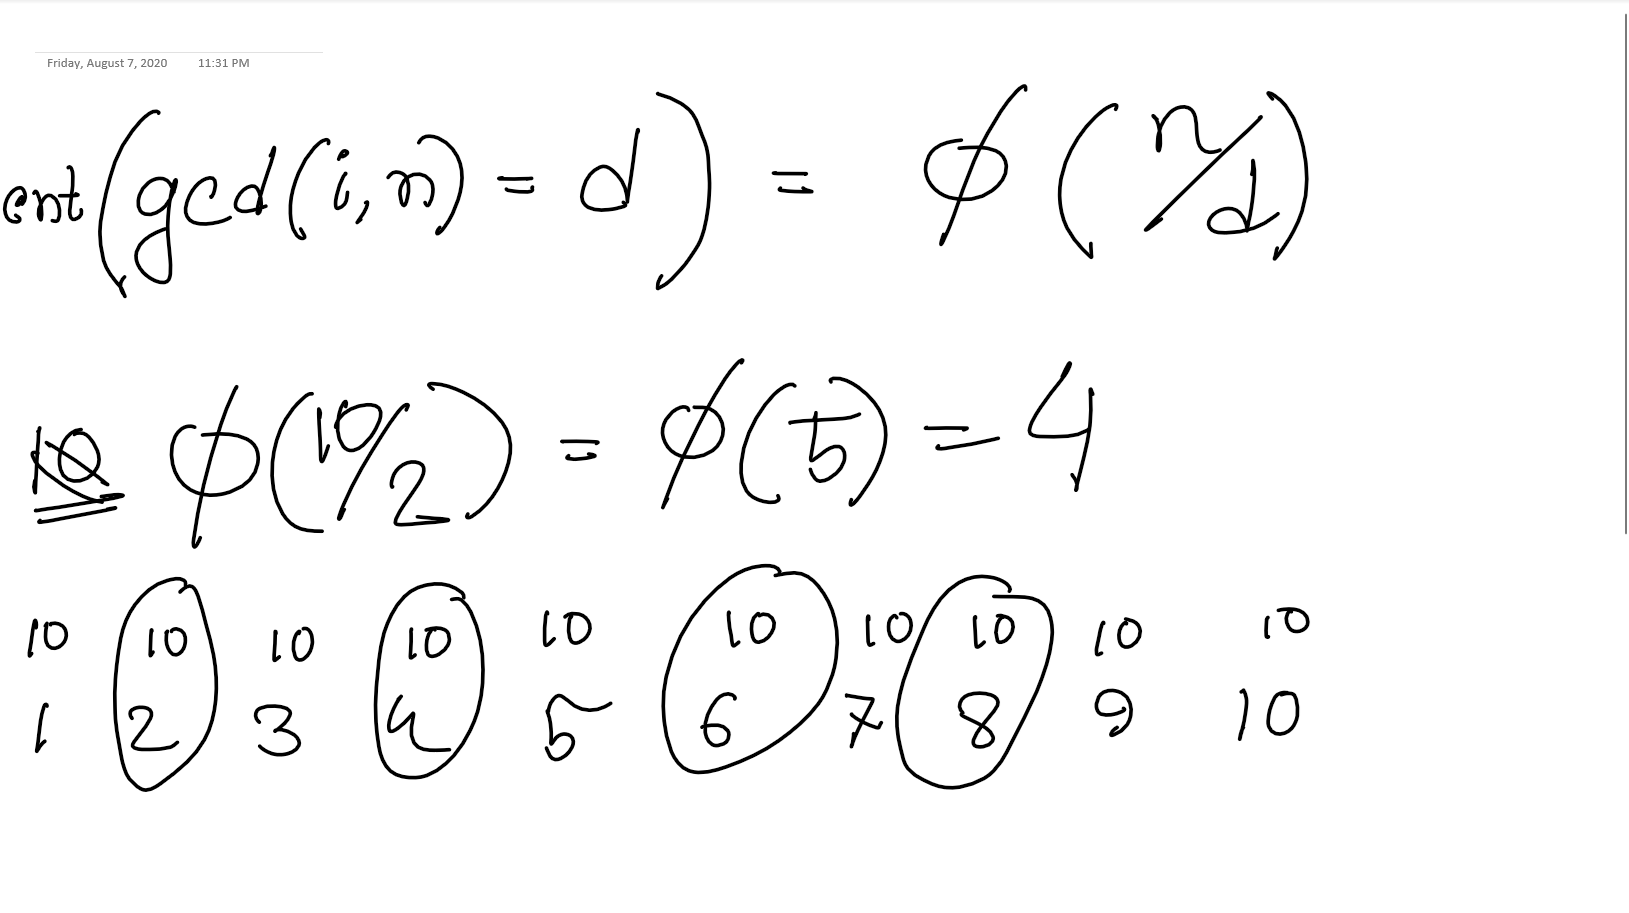 Friday, August 7, 2020 11:31 PM
cnt(gcd(i,n) = d) = φ(n/d)
10 φ(10/2) = φ(5) = 4
10 10 10 10 10 10 10 10 10 10
1 2 3 4 5 6 7 8 9 10